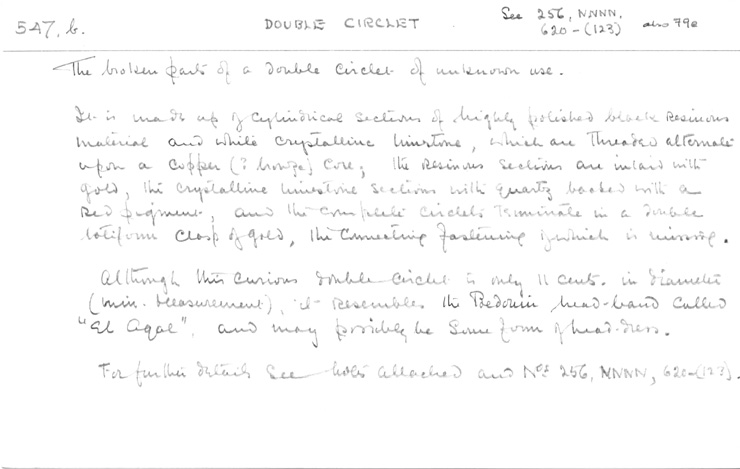 547, b.
DOUBLE CIRCLET
See 256, NNNN.
620-(123) also 79e
The broken parts of a double circlet of unknown use.
It is made up of cylindrical sections of highly polished black resinous
material and white crystalline limestone, which are threaded alternate
upon a copper (? bronze) core; the resinous sections are inlaid with
gold, the crystalline limestone sections with quartz backed with a
red pigment, and the complete circlets terminate in a double
lotiform clasp of gold, the connecting fastening of which is missing.
Although this curious double circlet is only 11 cents. in diameter
(min. measurement), it resembles the Bedouin head-band called
"El Aqal", and may possibly be some form of head-dress.
For further details see notes attached and Nos 256, NNNN, 620-(123).